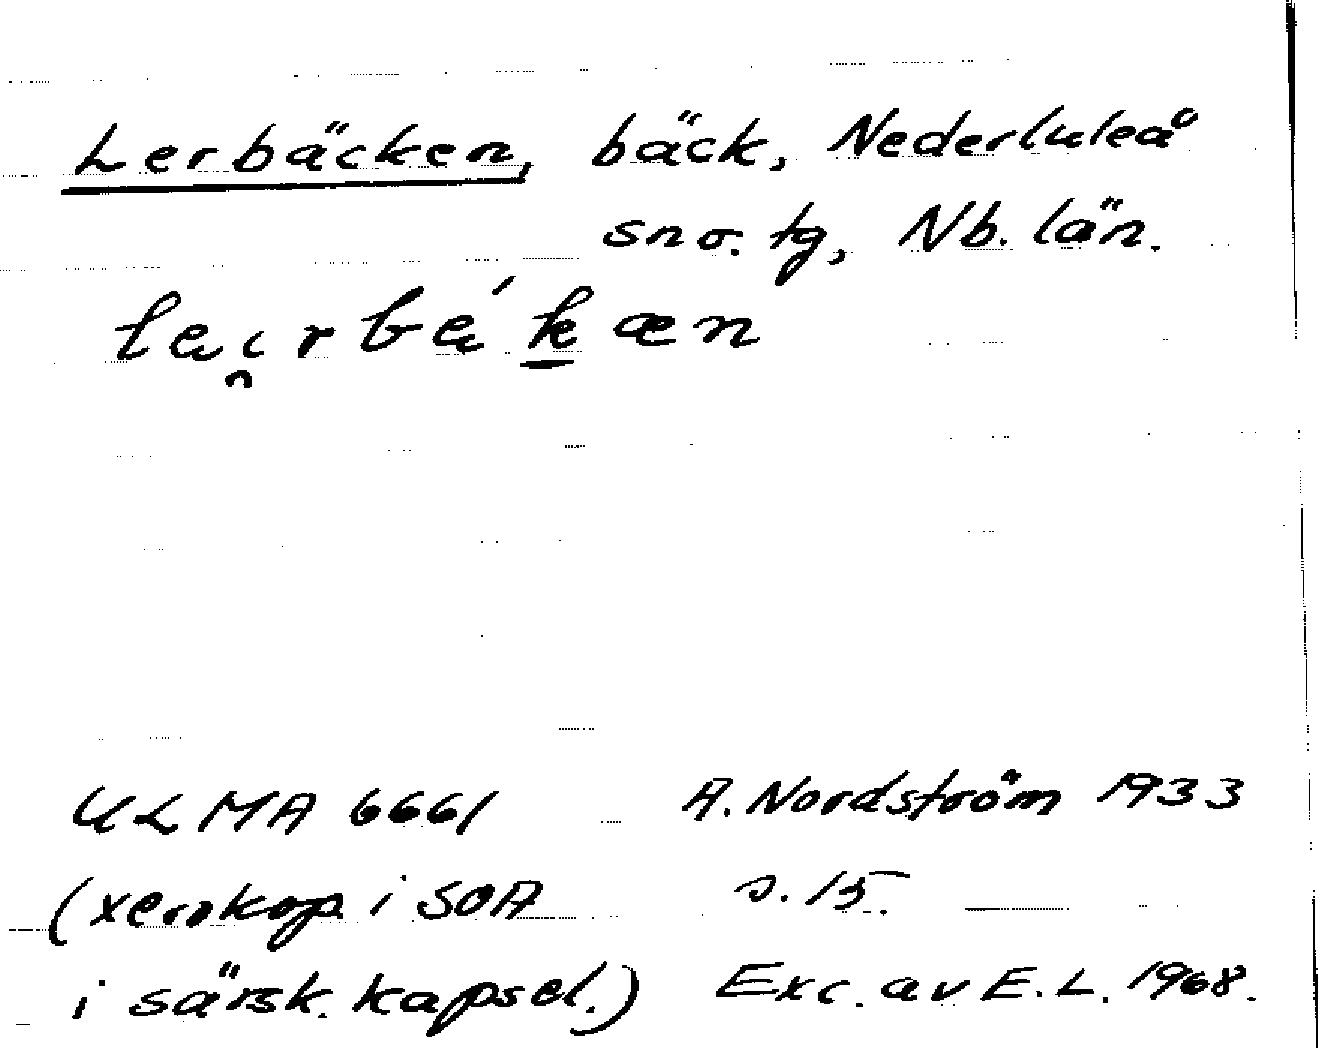 Lerbäcken, bäck, Nederluleå
sno. tg, Nb. län.
ULMA 6661 A. Nordström 1933
(xerokop. i SOA s. 15.
i särsk. kapsel.) Exc. av E.L. 1968.